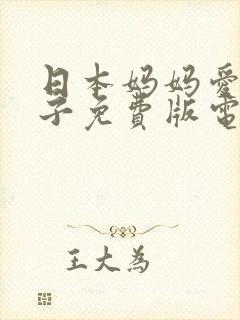 日本妈妈愛
子免費版電
王大為